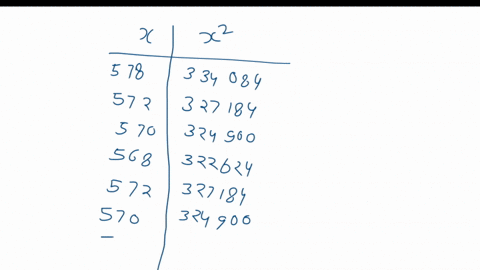 x x²
578 334 084
572 327184
570 324900
568 322624
572 327184
570 324900